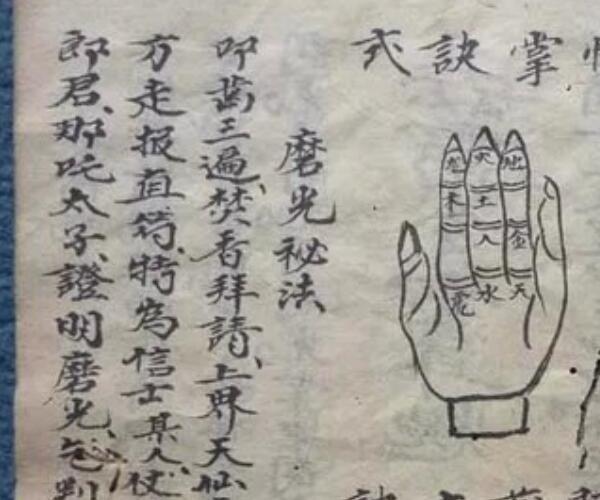 掌訣式
地 火 龙
土 木
金 人
天 水
磨光秘法
叩齒三遍、焚香拜請、上界天仙
方走报直符、特為信士某人、
郎君、那吒太子、證明磨光、